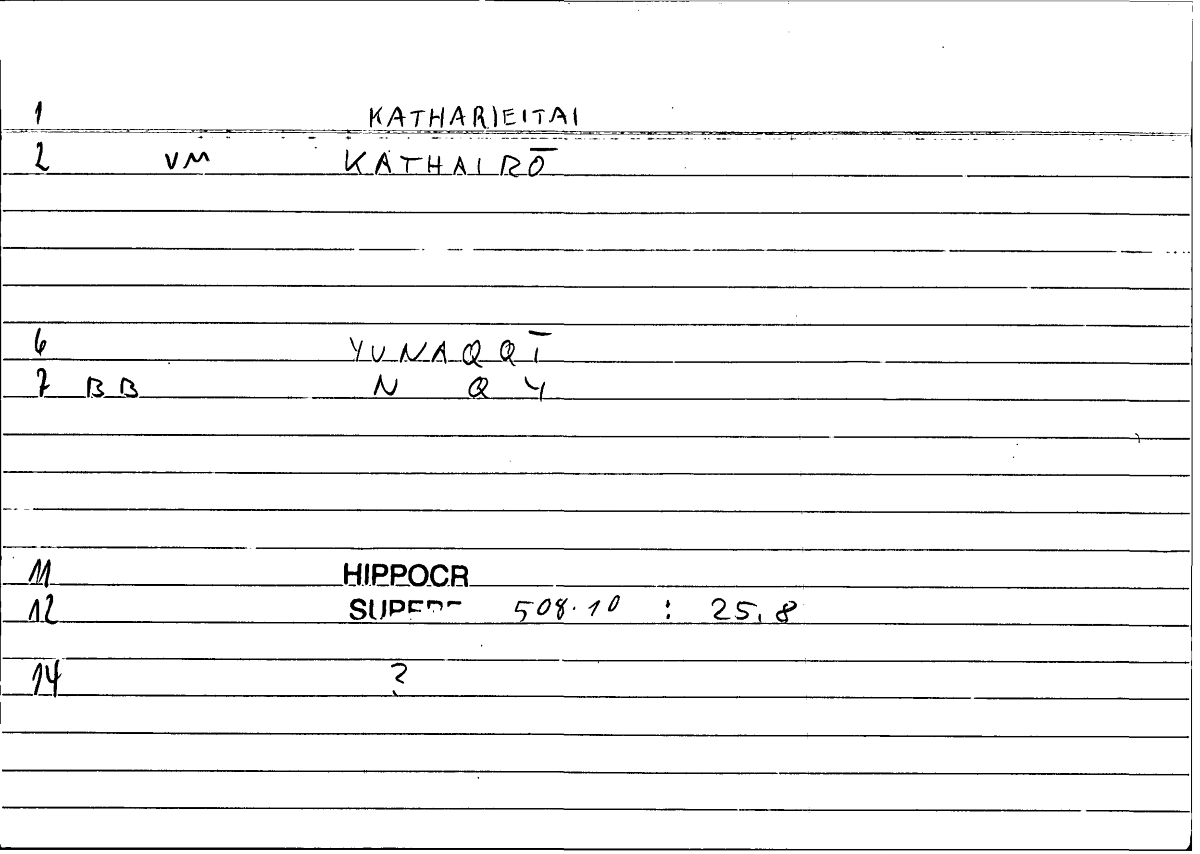 1 KATHARIEITAI
2 VM KATHAIRŌ
6 YUNAQQĪ
7 BB N Q Y
11 HIPPOCR
12 508.10 : 25,8
14 ?